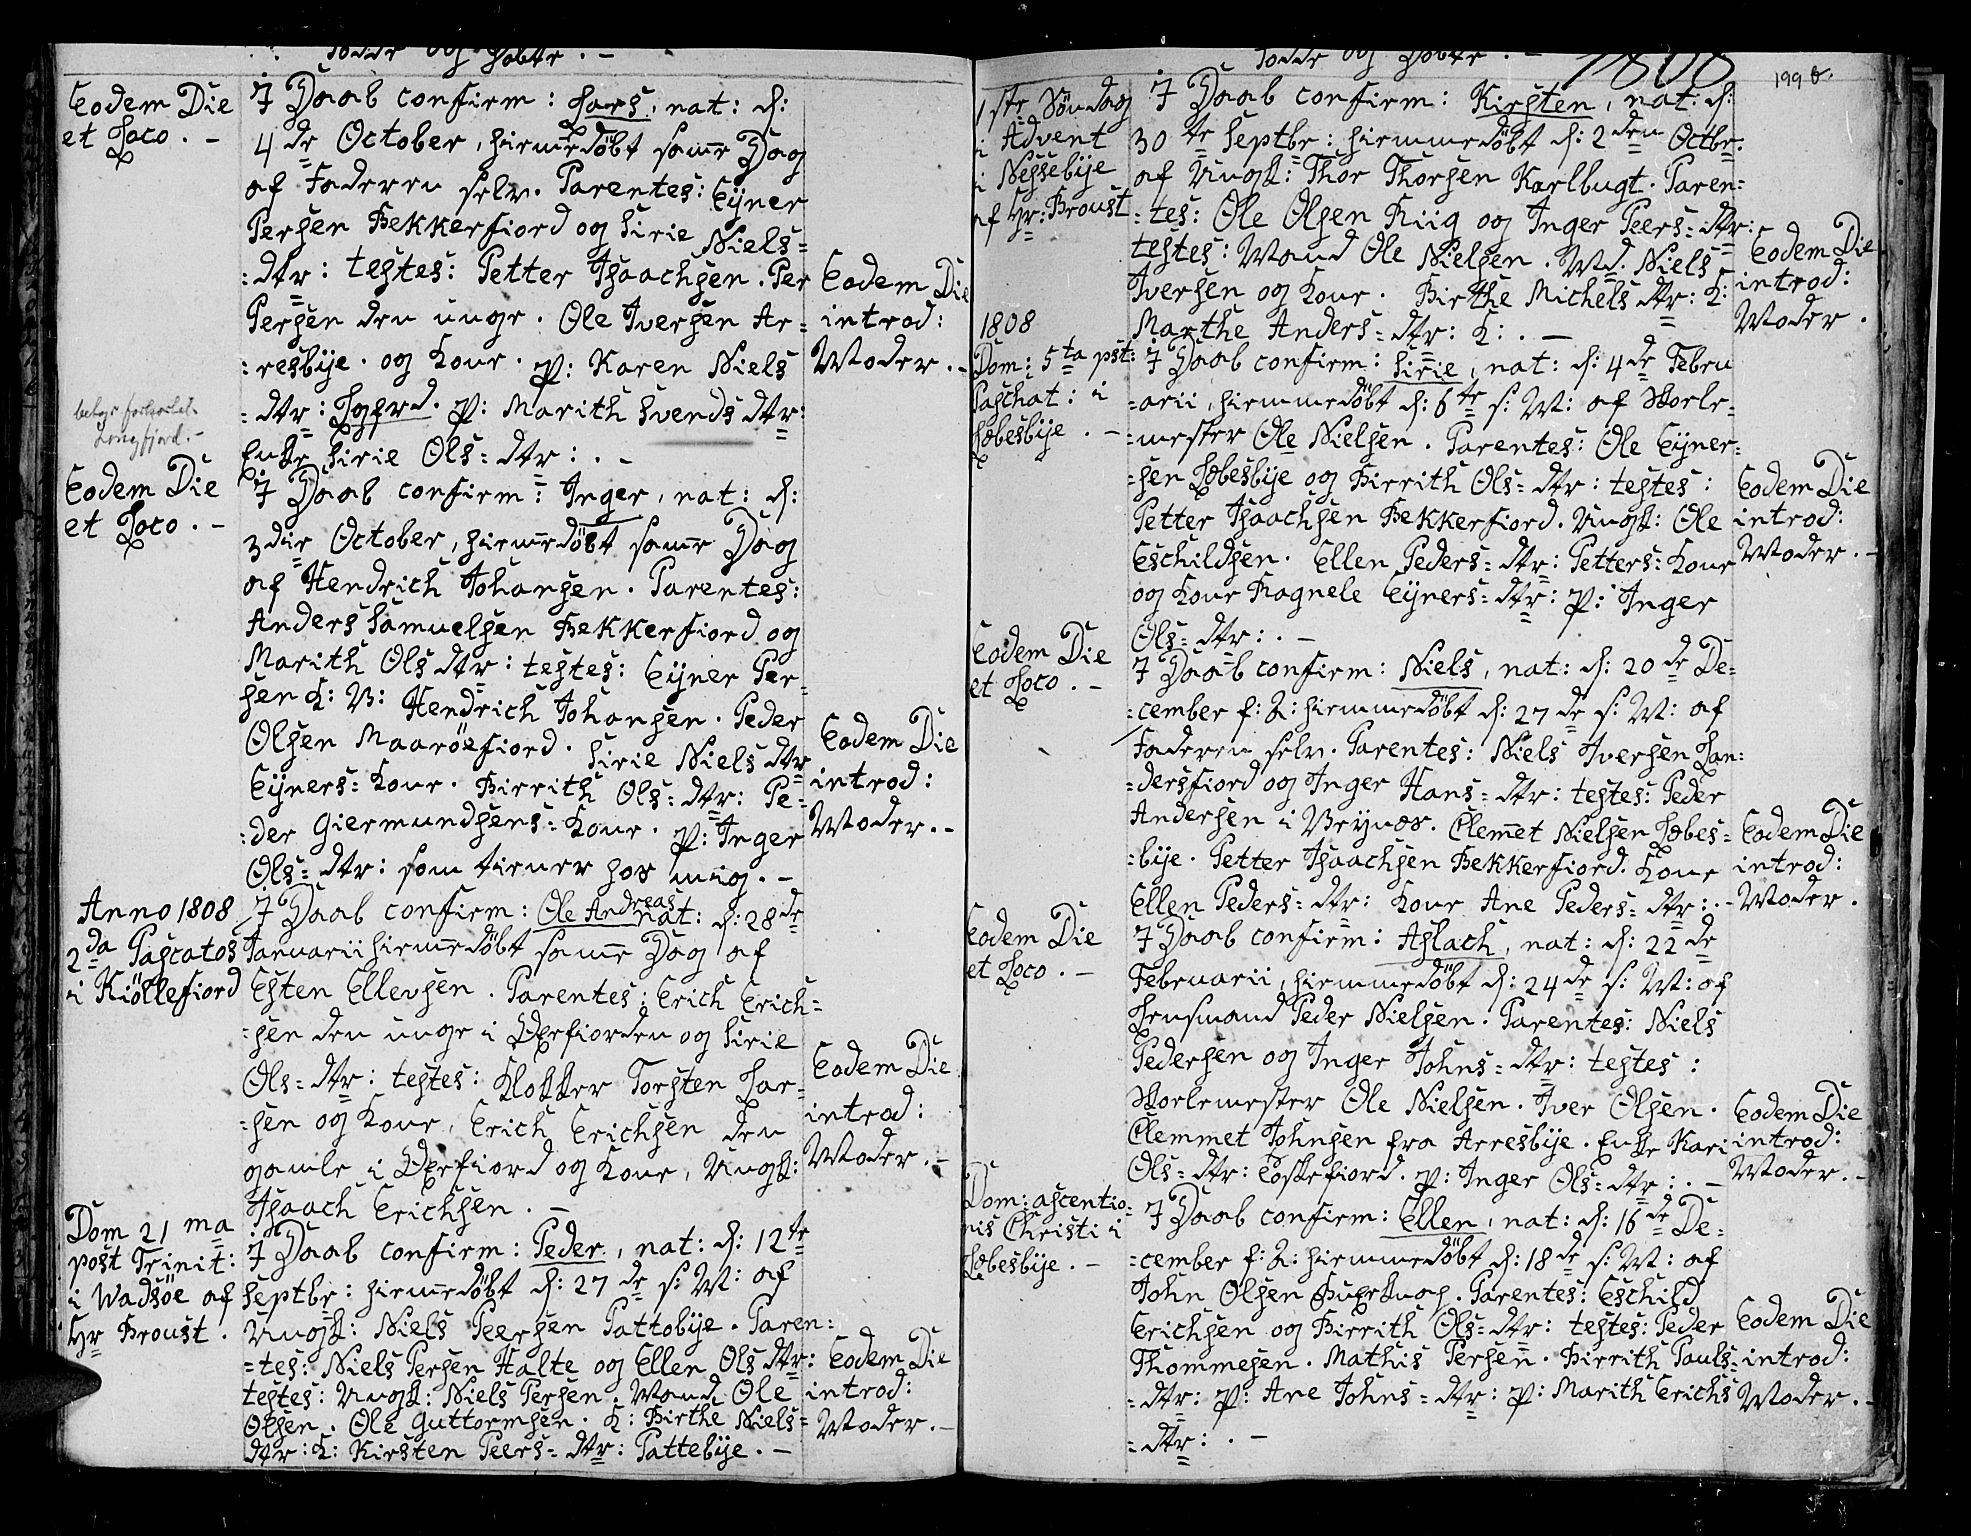 Fødde og Døbte. -
Eodem Die
et Loco. -
I Daab confirm: Lars, nat: d:
4de October, hiemedøbt same Dag
af Faderen selv. Parentes: Ejner
Persen Bekkerfiord og Sirie Niels=
=dtr: testes: Petter Isaachsen. Per
Persen den unge. Ole Iversen Ar=
=resbÿe. og Kone. P: Karen Niels
=dtr: Logerd. P: Marith Svends dtr:
Enke Sirie Ols=dtr: . -
Eodem Die
introd:
Moder. -
Langfjord. -
Eodem Die
et Loco. -
I Daab confirm: Inger, nat: d:
3die October, hiemedøbt same Dag
af Hendrich Johansen. Parentes:
Anders Samuelsen Bekkerfiord og
Marith Ols dtr: testes: Ejner Per-
sen K: B: Hendrich Johansen. Peder
Olsen Maaröefiord. Sirie Niels dtr
Ejners= Kone. Birrith Ols=dtr: Pe=
=der Giermundsens= Kone. P: Inger
Ols=dtr: som tiener hos mig. -
Eodem Die
introd:
Moder. -
Anno 1808
2da Pascatos
i Kiöllefiord
I Daab confirm: Ole Andreas nat: d: 28de
Januarii hiemedøbt same Dag af
Esten Ellevsen. Parentes: Erich Erich=
=sen den unge i Oxefiorden og Sirie
Ols=dtr: testes: Klokker Torsten Lar=
=sen og Kone, Erich Erichsen den
gamle i Oxefiord og Kone, Ungk:
Isaach Erichsen. -
Eodem Die
introd:
Moder. -
Dom 21ma
post Trinit:
i Wadsöe af
Hr Broust.
I Daab confirm: Peder, nat: d: 12te
Septbr: hiemedøbt d: 27de s: M: af
Ungk: Niels Peersen Pattobÿe. Paren=
=tes: Niels Persen Halte og Ellen Ols dtr:
testes: Ungk: Niels Persen. Mand Ole
Olsen. Ole Guttormsen. K: Birthe Niels=
dtr: K: Kirsten Peers=dtr: Pattebÿe. -
Eodem Die
introd:
Moder. -
Fødde og Døbte. -
1808
199 b.
1ste Söndag
i Advent
i Nessebÿe
af Hr: Broust
I Daab confirm: Kirsten, nat: d:
30te Septbr: hiemmedøbt d: 2den Octbr.
af Ungk: Thor Thorsen Karlbugt. Paren=
=tes: Ole Olsen Riig og Inger Peers=dtr:
testes: Mand Ole Nielsen. Md: Niels
Iversen og Kone. Birthe Michels dtr: K:
Marthe Anders=dtr: K: . -
Eodem Die
introd:
Moder.
1808
Dom: 5ta pst:
Paschat: i
Lebesbÿe. -
I Daab confirm: Sirie, nat: d: 4de Febru
=arii, hiemmedøbt d: 6te s: M: af Skole=
=mester Ole Nielsen. Parentes: Ole Ejner=
=sen Lebesbÿe og Birrith Ols=dtr: testes:
Petter Isaachsen Bekkerfiord. Ungk: Ole
Eschildsen. Ellen Peders=dtr: Petters= Kone
og Kone Ragnele Ejners=dtr: P: Inger
Ols=dtr: . -
Eodem Die
introd:
Moder. -
Eodem Die
et Loco. -
I Daab confirm: Niels, nat: d: 20de De=
=cember f: A: hiemmedøbt d: 27de s: M: af
Faderen selv. Parentes: Niels Iversen Lan=
=dersfiord og Inger Hans=dtr: testes: Peder
Andersen i Veynæs. Clemet Nielsen Lebes=
=bÿe. Petter Isaachsen Bekkerfiord. Kone
Ellen Peders=dtr: Kone Ane Peders=dtr: . -
Eodem Die
introd:
Moder.
Eodem Die
et Loco. -
I Daab confirm: Aslach, nat: d: 22de
Februarii, hiemmedøbt d: 24de s: M: af
Lensmand Peder Nielsen. Parentes: Niels
Pedersen og Inger Johns=dtr: testes:
Skolemester Ole Nielsen. Iver Olsen.
Clemmet Johnsen fra Arresbÿe. Enke Kari
Ols=dtr: Eoskefiord. P: Inger Ols=dtr: . -
Eodem Die
introd:
Moder. -
Dom: ascentio=
nis Christi i
Lebesbÿe. -
I Daab confirm: Ellen, nat: d: 16de De=
=cember f: A: hiemmedøbt d: 18de s: M: af
John Olsen. Parentes: Eschild
Erichsen og Birrith Ols=dtr: testes: Peder
Thommesen. Mathis Persen. Birrith Pauls=
=dtr: P: Ane Johns=dtr: P: Marith Erichs
=dtr: . -
Eodem Die
introd:
Moder. -